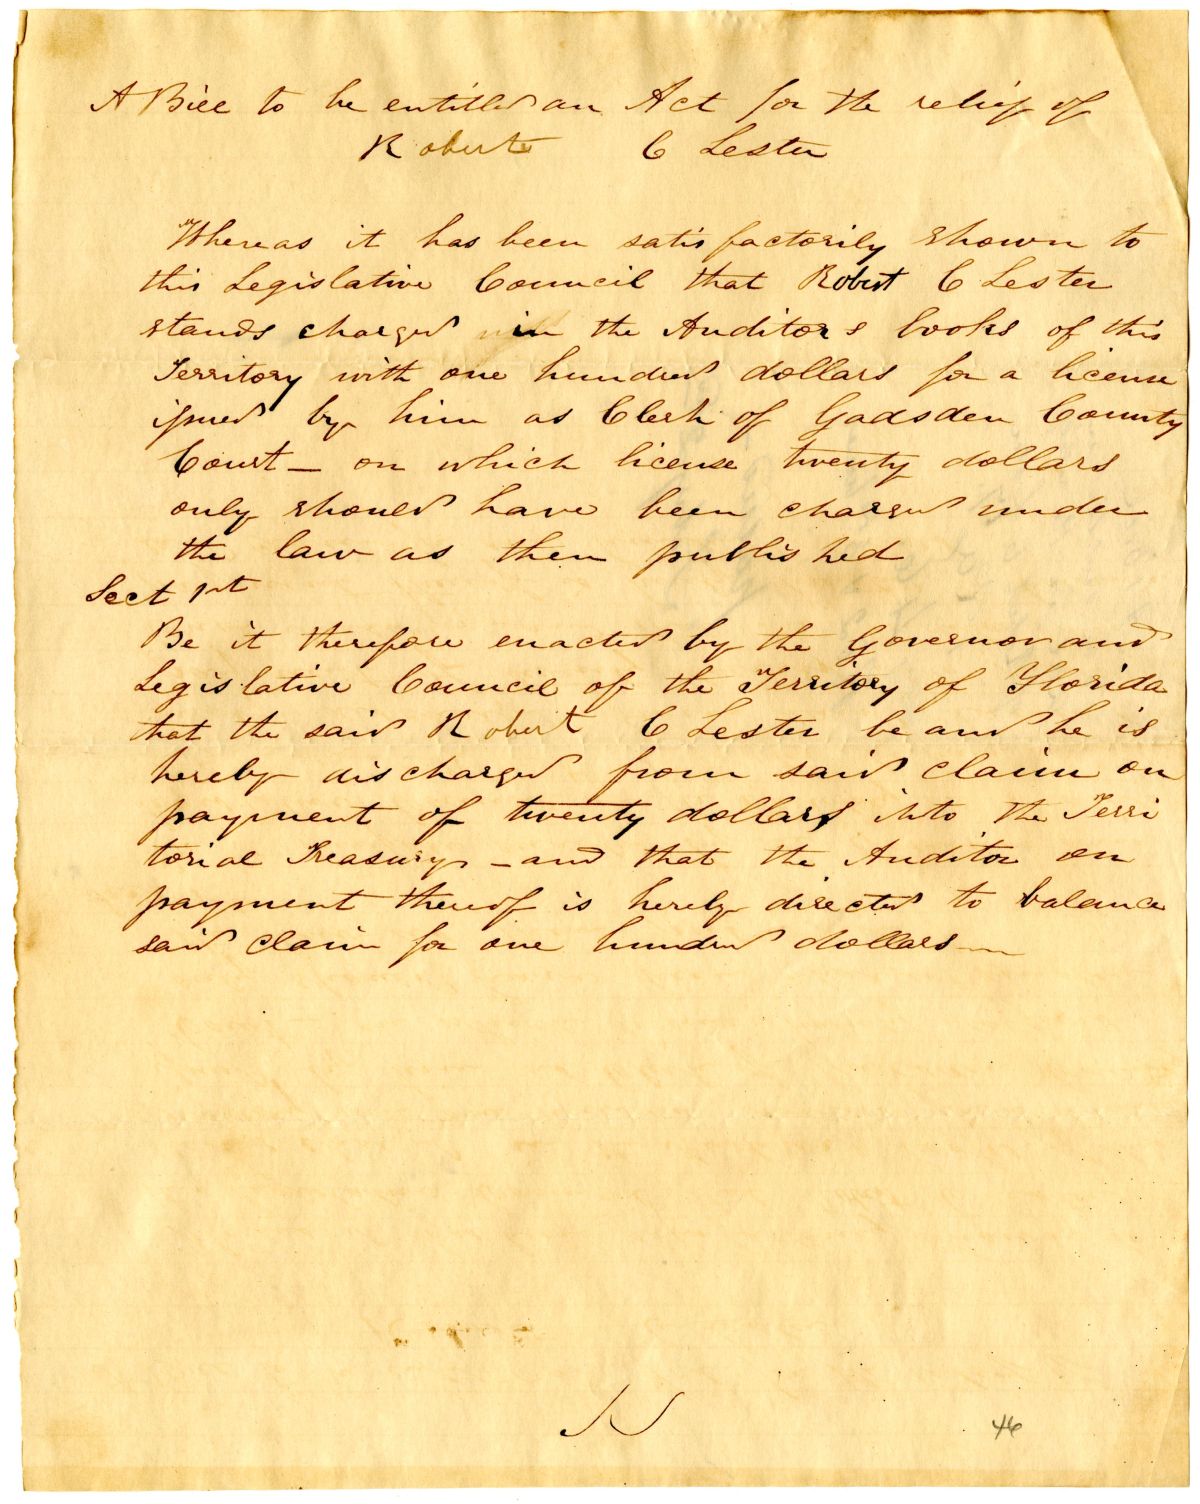 A Bill to be entitled an Act for the relief of
Robert C Lester
Whereas it has been satisfactorily shown to
this Legislative Council that Robert C Lester
stands charged in the Auditors books of this
Territory with one hundred dollars for a license
issued by him as Clerk of Gadsden County
Court - on which license twenty dollars
only should have been charged under
the law as then published
Sect 1st
Be it therefore enacted by the Governor and
Legislative Council of the Territory of Florida
that the said Robert C Lester be and he is
hereby discharged from said claim on
payment of twenty dollars into the Terri
torial Treasury - and that the Auditor on
payment thereof is hereby directed to balance
said claim for one hundred dollars
46